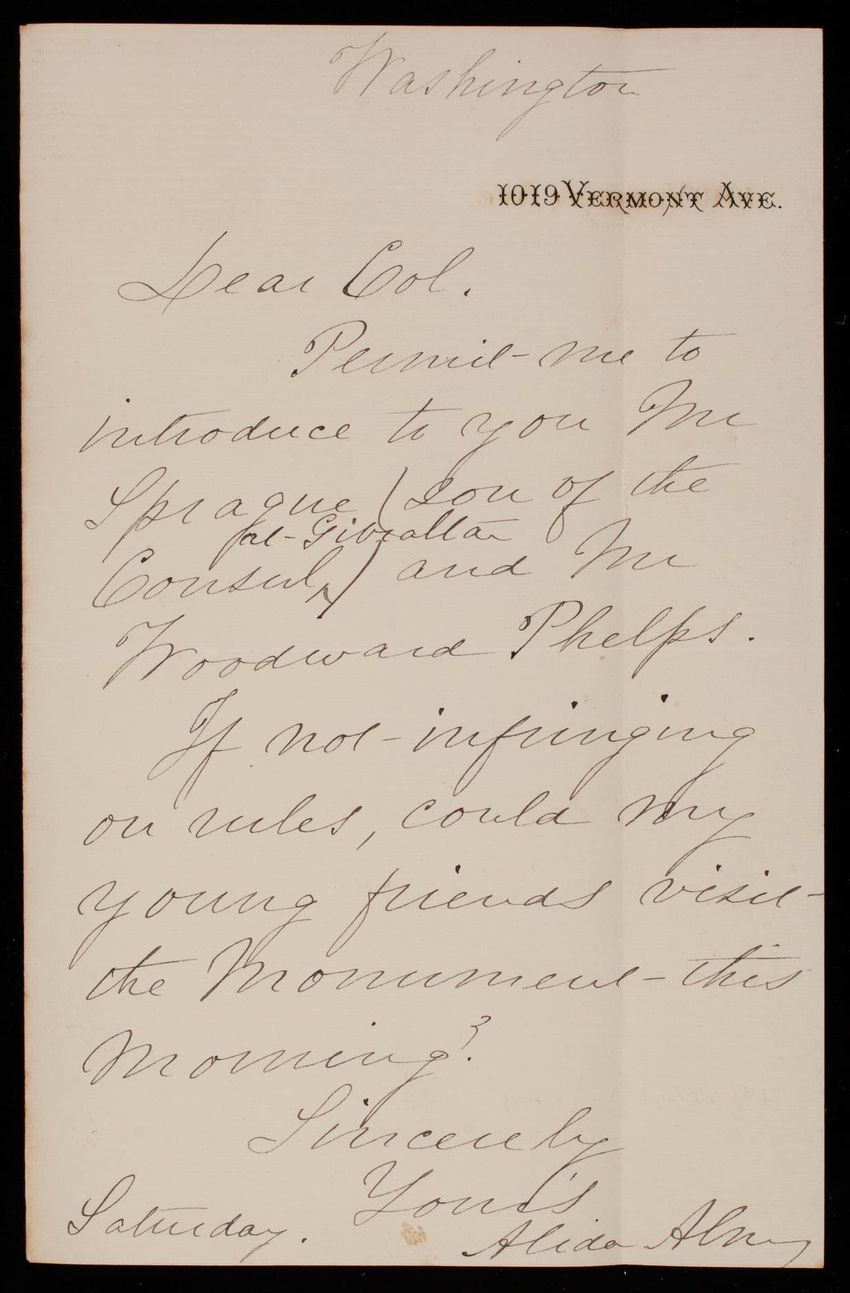 Washington
1019 VERMONT AVE.
Dear Col.
Permit me to
introduce to you Mr
Sprague (son of the
at Gibraltar
Consul) and Mr
Woodward Phelps.
If not infringing
on rules, could my
young friends visit
the Monument this
Morning?
Sincerely
Yours
Saturday.
Alida